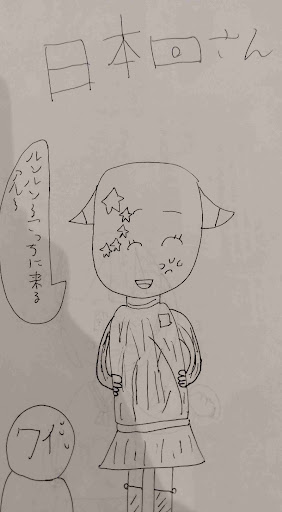 日本回さん
ルンルン〜でこっちに来る
ワイ